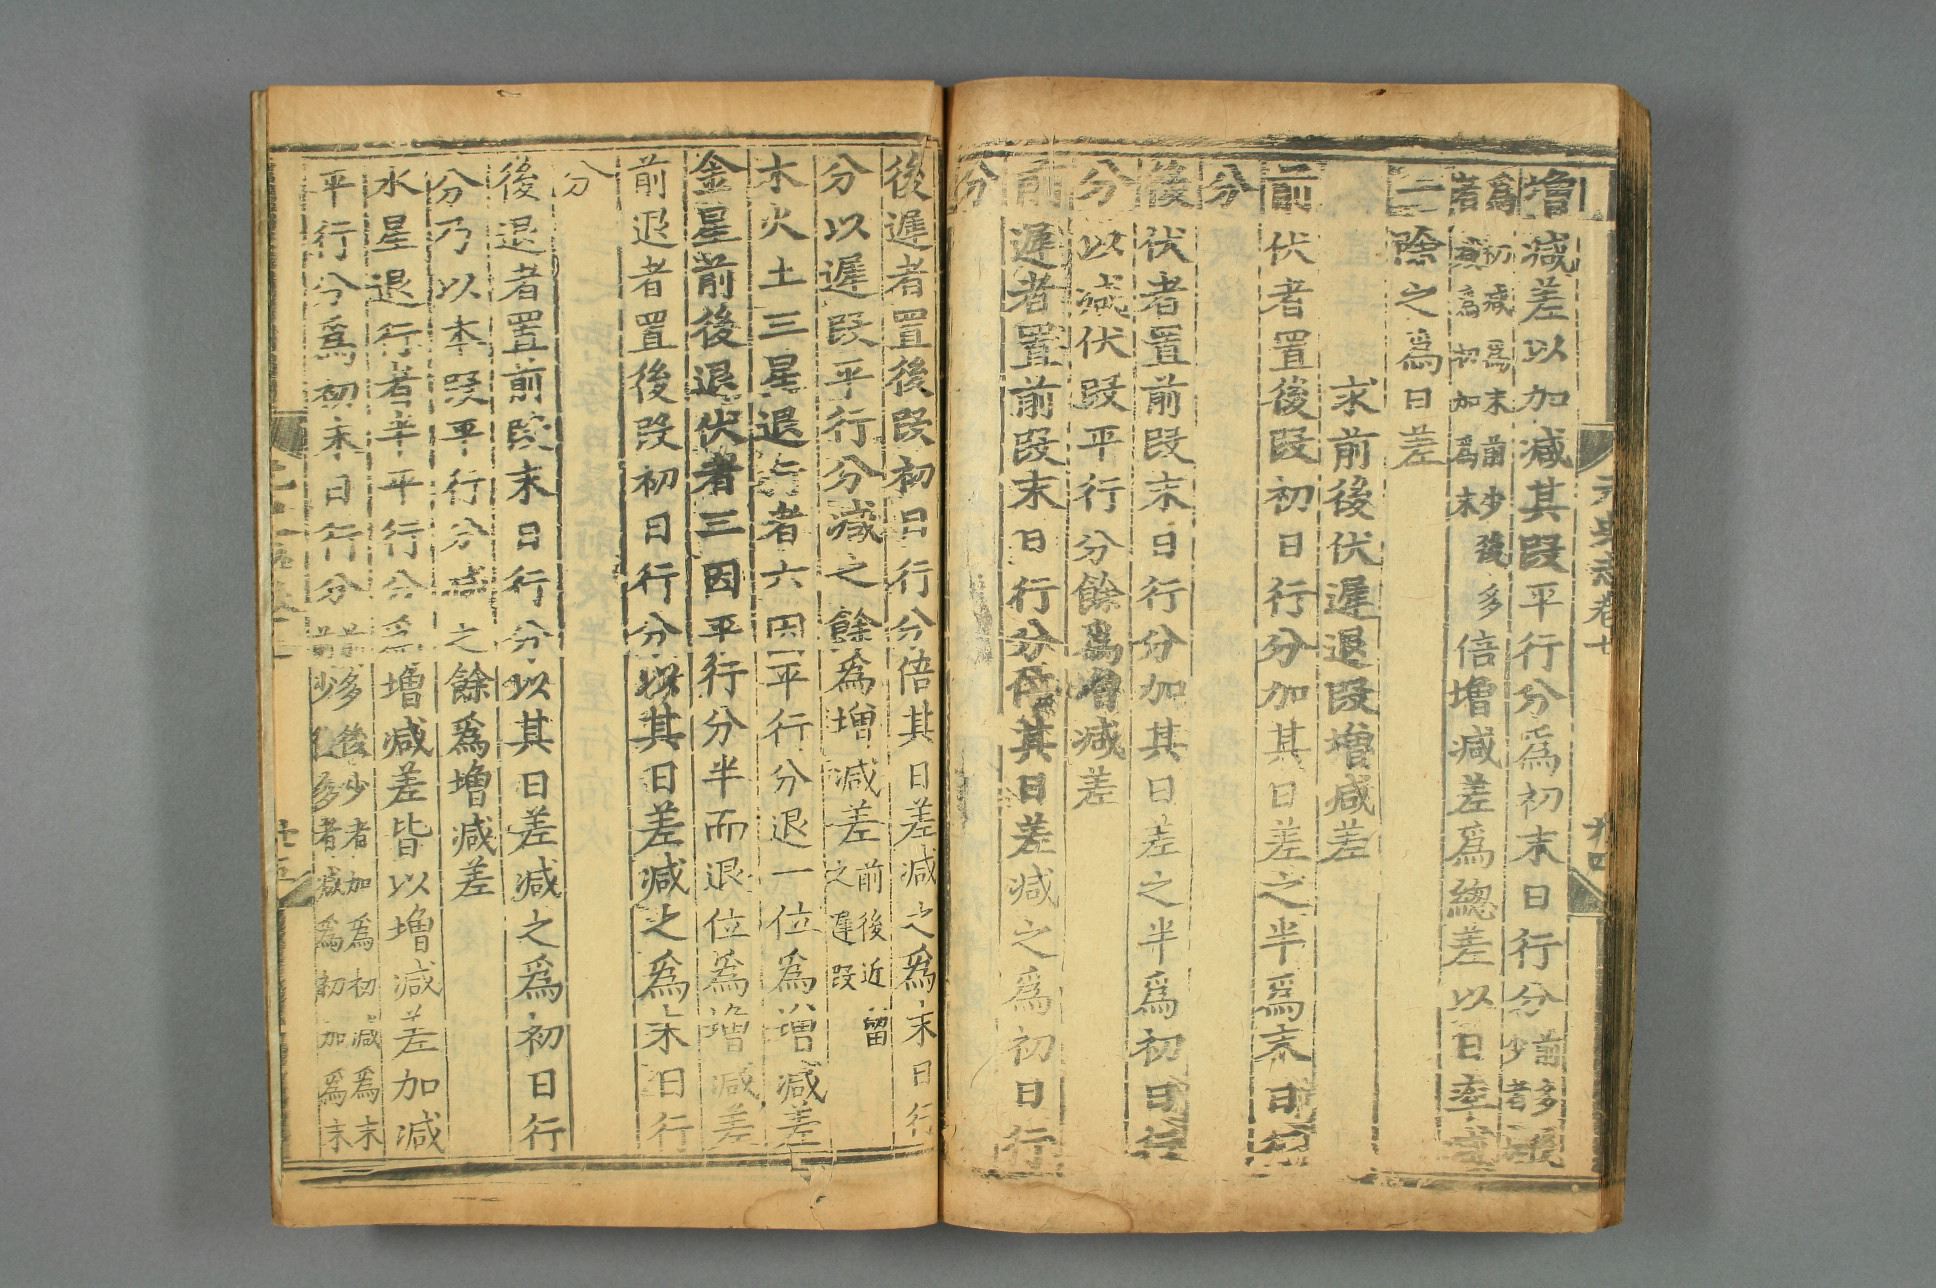 增減差以加減其段平行分爲初末日行分前多少者減
爲初減爲末前少後多倍增減差爲總差以日率減
者減爲初加爲末
一除之爲日差
求前後伏遲退段增減差
前伏者置後段初日行分加其日差之半爲末日行
分
後伏者置前段末日行分加其日差之半爲初日行
分以減伏段平行分餘爲增減差
前遲者置前段末日行分倍其日差減之爲初日行
分
後遲者置後段初日行分倍其日差減之爲末日行
分以遲段平行分減之餘爲增減差前後近留之遲段
木火土三星退行者六因平行分退一位爲增減差
金星前後退伏者三因平行分半而退位爲增減差
前退者置後段初日行分以其日差減之爲末日行
分
後退者置前段末日行分以其日差減之爲初日行
分乃以本段平行分減之餘爲增減差
水星退行者半平行分爲增減差皆以增減差加減
平行分爲初末日行分前多後少者加爲初減爲末
前少後多者減爲初加爲末